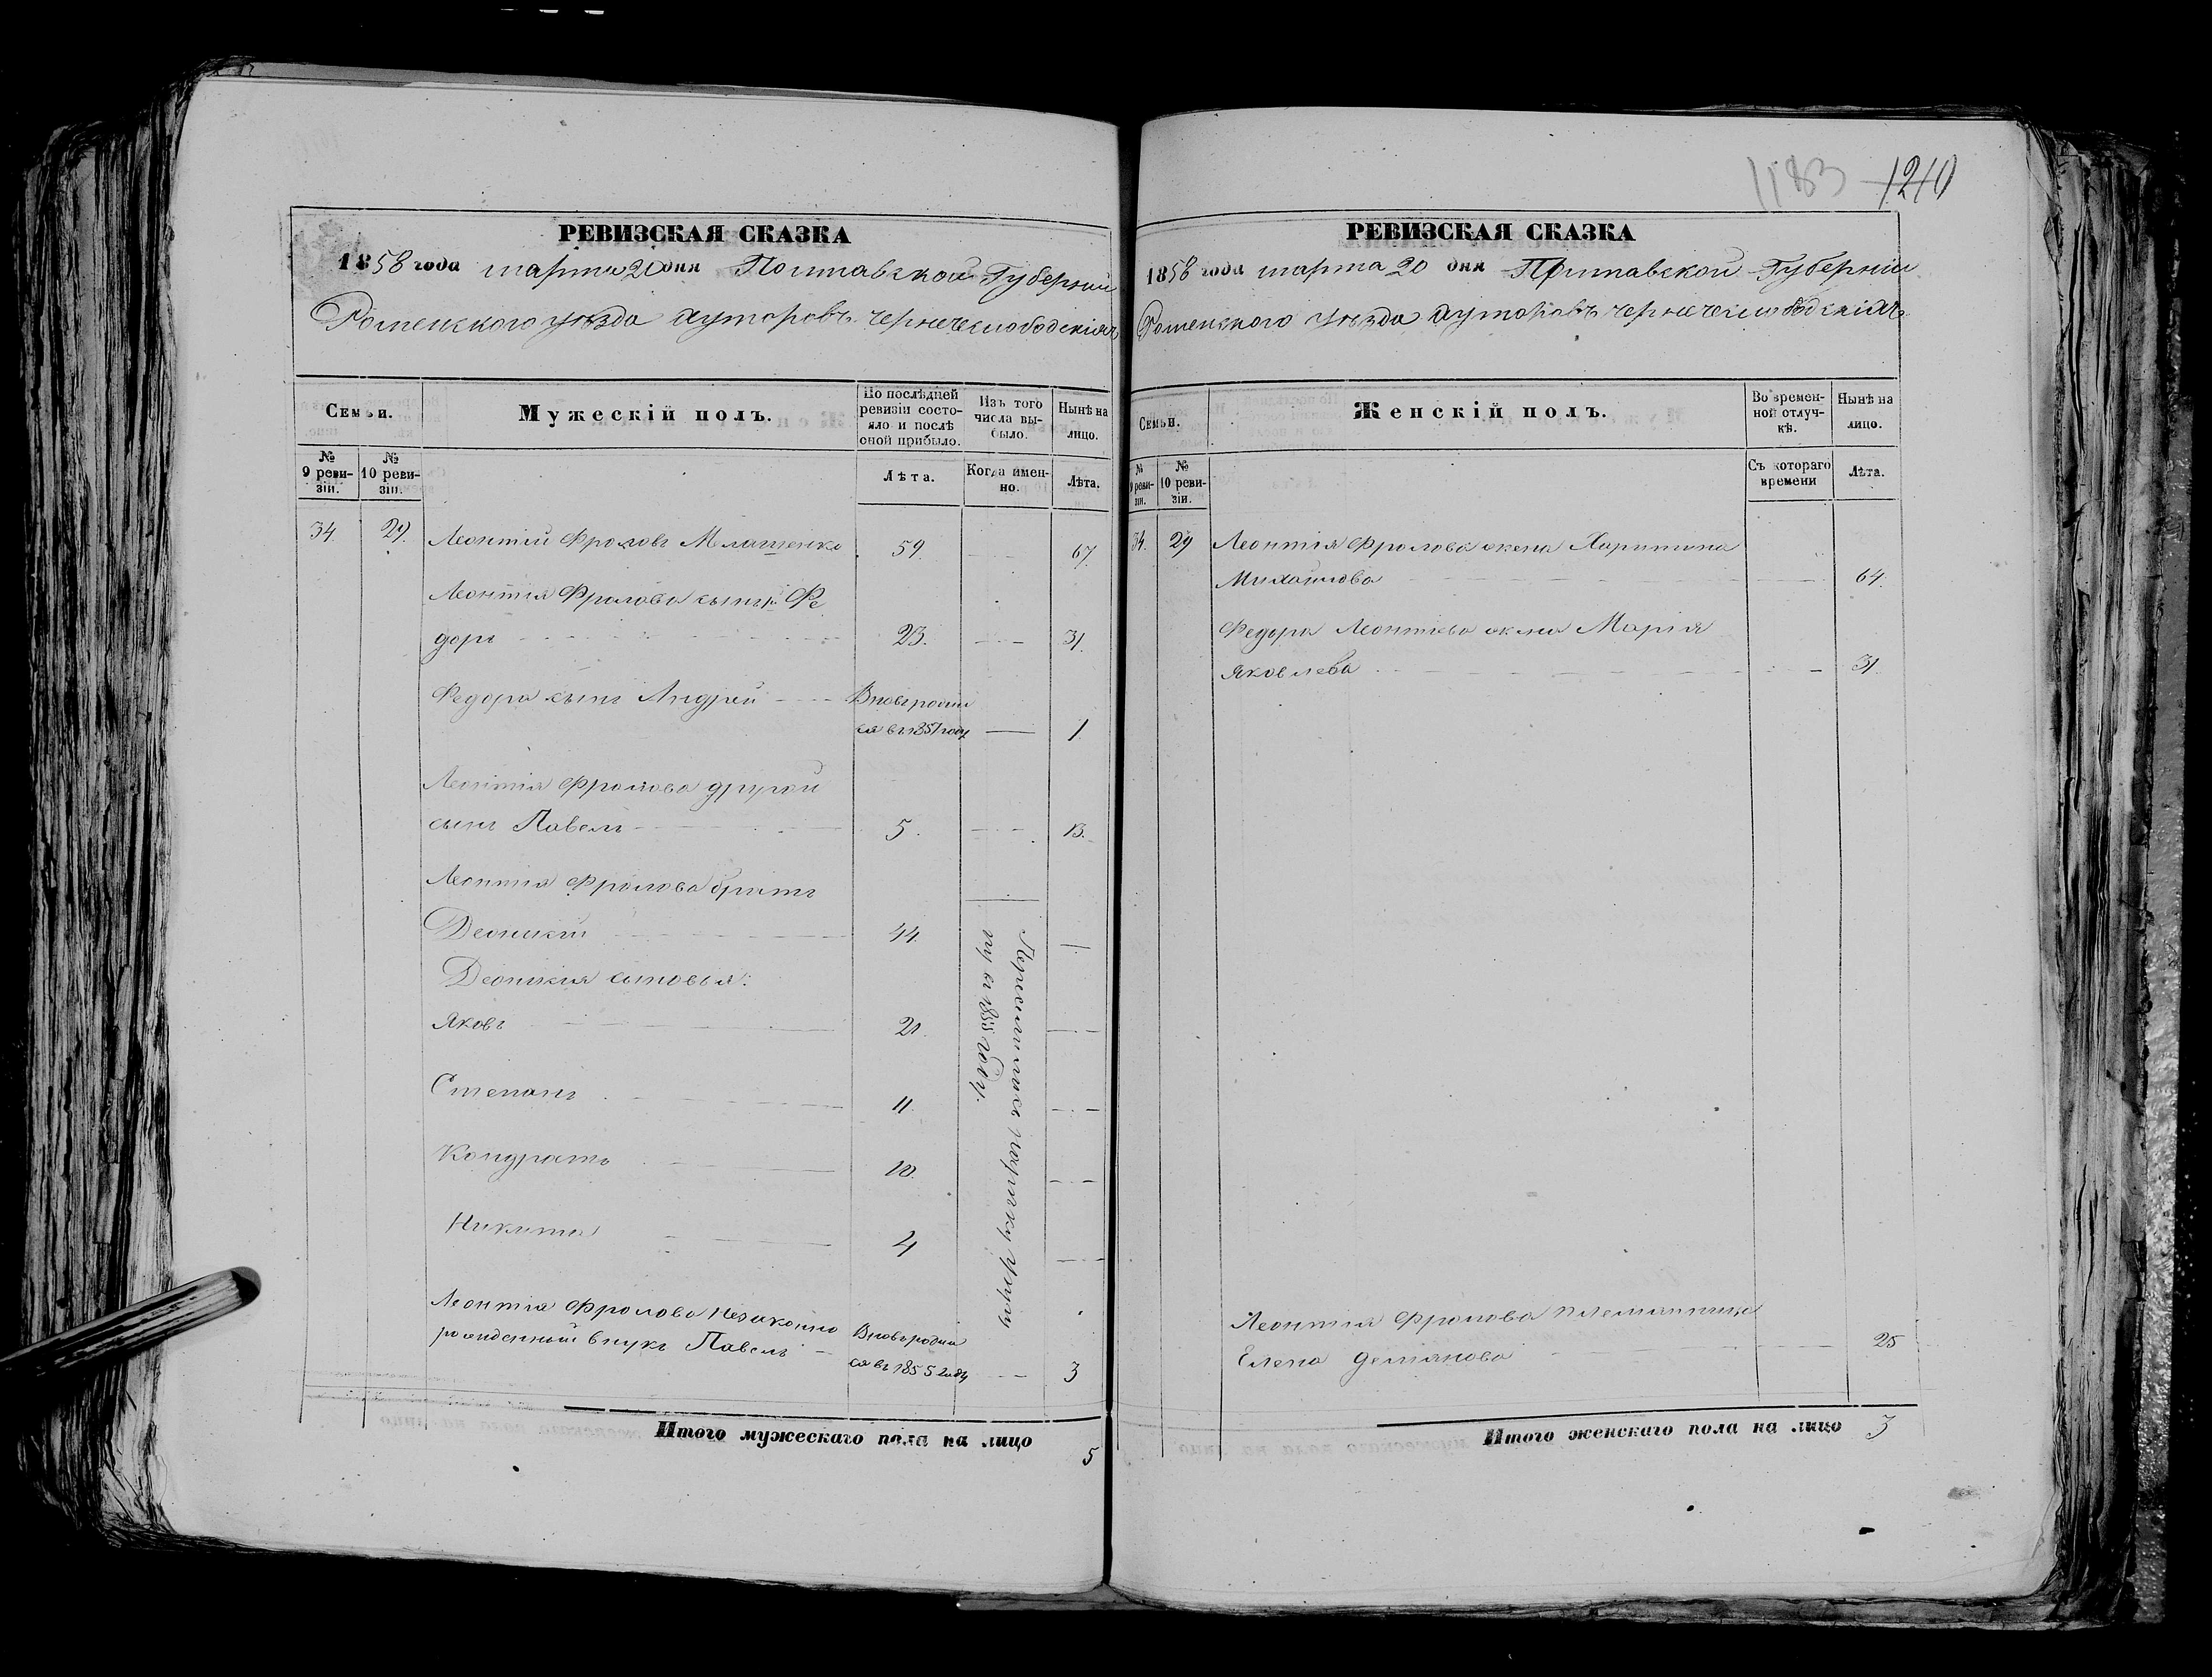 1183 1210
РЕВИЗСКАЯ СКАЗКА
1858 года марта 20 дня Полтавской Губерніи
Роменского уѣзда хуторовъ чернечеслободскіхъ
Семьи.
Мужескій полъ.
По послѣдней ревизіи состояло и послѣ оной прибыло.
Изъ того числа выбыло.
Нынѣ на лицо.
№ 9 ревизіи.
№ 10 ревизіи.
Лѣта.
Когда именно.
Лѣта.
34. 29. Леонтій Фроловъ Мелащенко 59. 67.
Леонтія Фролова сынъ Фе
доръ 23. 31.
Федора сынъ Андрей Вновьродил
ся въ 1857 году 1
Леонтія Фролова другой
сынъ Павелъ 5. 13.
Леонтія Фролова братъ
44.
сыновья:
Яковъ 21.
Степанъ 11.
Кондратъ 10.
Никита 4
году.
Леонтія Фролова незаконно
рожденный внукъ Павелъ Вновьродил
ся въ 1855 году 3
Итого мужескаго пола на лицо
5
РЕВИЗСКАЯ СКАЗКА
1858 года марта 20 дня Полтавской Губерніи
Роменского уѣзда хуторовъ чернечеслободскіхъ
Семьи.
Женскій полъ.
Во временной отлучкѣ.
Нынѣ на лицо.
№ 9 ревизіи.
№ 10 ревизіи.
Съ котораго времени
Лѣта.
34. 29 Леонтія Фролова жена Харитина
Михайлова 64.
Федора Леонтіева жена Марія
Яковлева 31.
Леонтія Фролова племянница
Елена Демянова 25
Итого женскаго пола на лицо 3